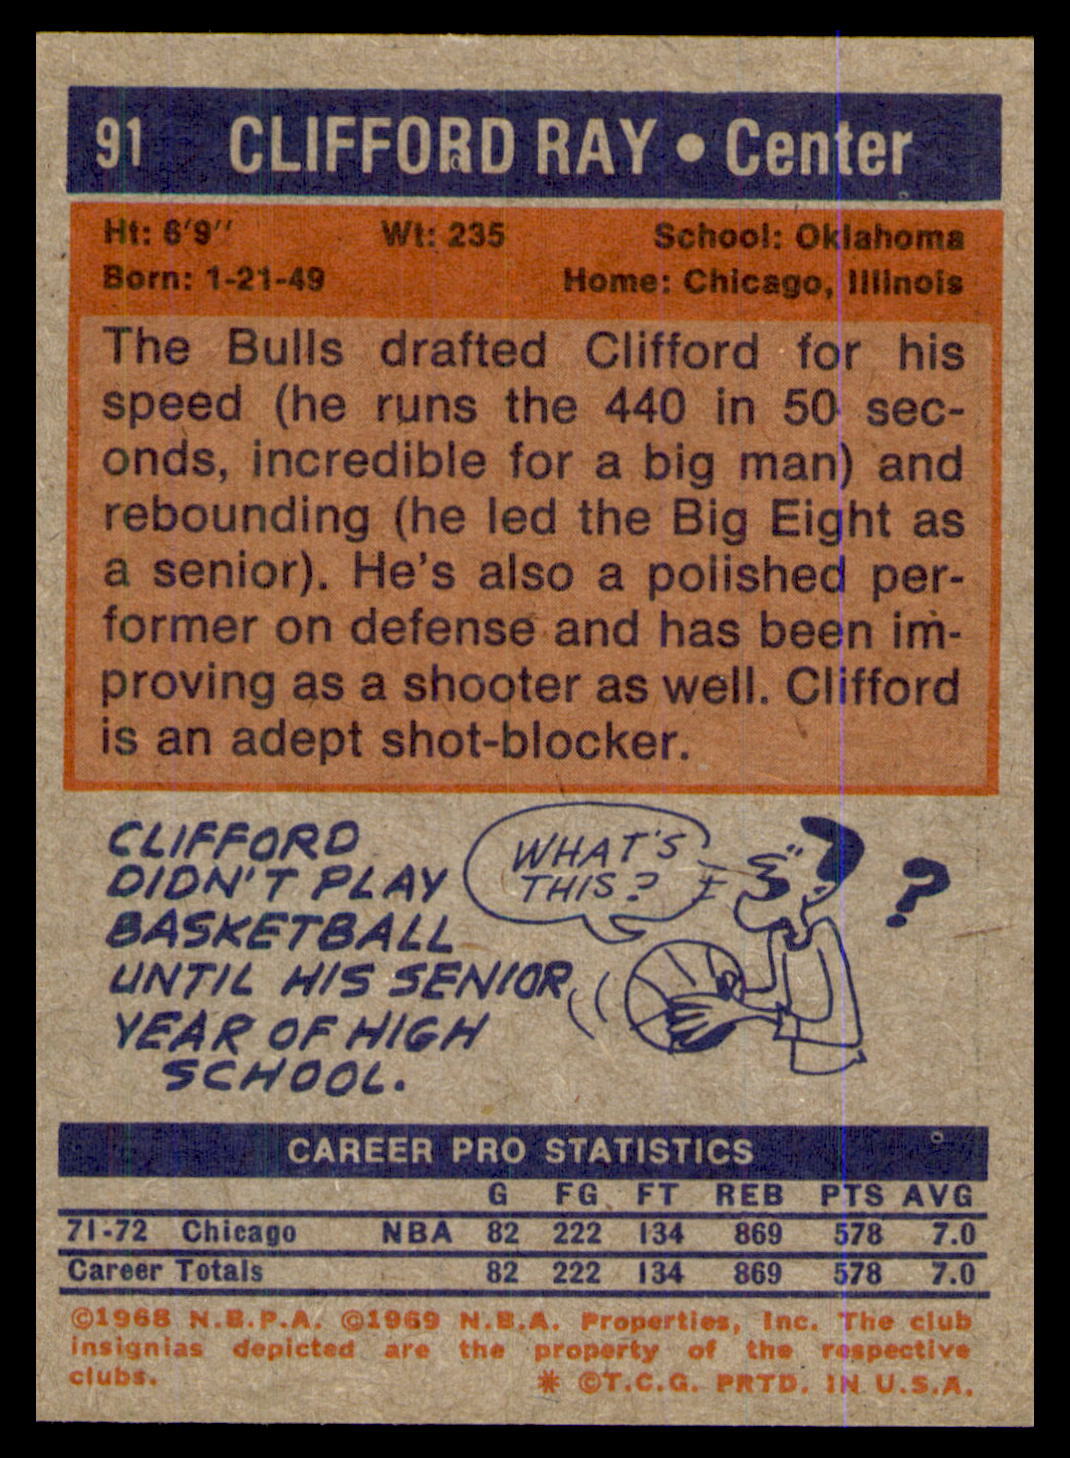 91 CLIFFORD RAY • Center
Ht: 6'9" Wt: 235 School: Oklahoma
Born: 1-21-49 Home: Chicago, Illinois
The Bulls drafted Clifford for his
speed (he runs the 440 in 50 sec-
onds, incredible for a big man) and
rebounding (he led the Big Eight as
a senior). He's also a polished per-
former on defense and has been im-
proving as a shooter as well. Clifford
is an adept shot-blocker.
CLIFFORD
DIDN'T PLAY
BASKETBALL
UNTIL HIS SENIOR
YEAR OF HIGH
SCHOOL.
WHAT'S
THIS?
?
CAREER PRO STATISTICS
G FG FT REB PTS AVG
71-72 Chicago NBA 82 222 134 869 578 7.0
Career Totals 82 222 134 869 578 7.0
©1968 N.B.P.A. ©1969 N.B.A. Properties, Inc. The club
insignias depicted are the property of the respective
clubs. * ©T.C.G. PRTD. IN U.S.A.